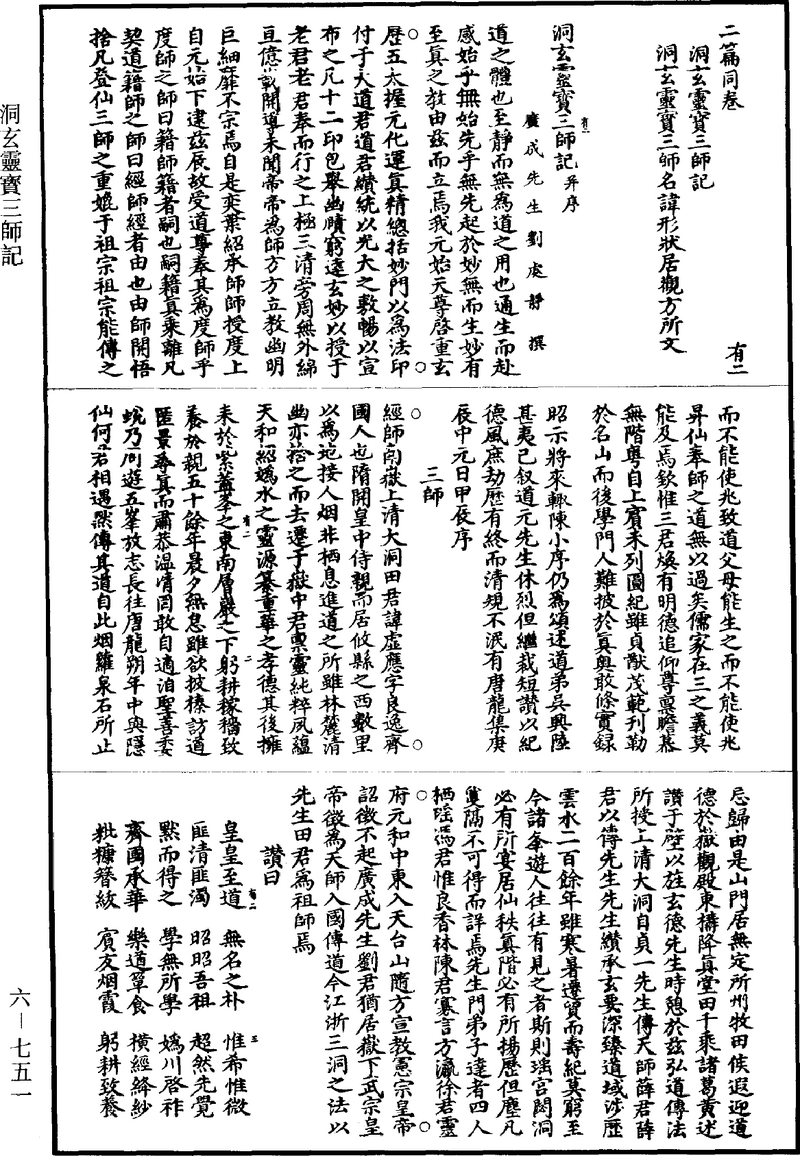 二篇同卷
洞玄靈寶三師記
洞玄靈寶三師名諱形狀居觀方所文
有二
洞玄靈寶三師記并序
有一
廣成先生劉處靜撰
道之體也至靜而無為道之用也通生而赴
感始乎無始先乎無先起於妙無而生妙有
至真之教由茲而立焉我元始天尊啓重玄
歷五太握元化運真精總括妙門以為法印
付于大道君道君纘統以光大之敷暢以宣
布之凡十二印包舉幽賾窮達玄妙以授于
老君老君奉而行之上極三清旁周無外綿
亘億載開導未聞帝帝為師方方立教幽明
巨細靡不宗焉自是奕葉紹承師師授度上
自元始下逮茲辰故受道尊奉其為度師乎
度師之師曰籍師籍者嗣也嗣籍真乘離凡
契道籍師之師曰經師經者由也由師開悟
捨凡登仙三師之重媲于祖宗祖宗能傳之
而不能使兆致道父母能生之而不能使兆
昇仙奉師之道無以過矣儒家在三之義莫
能及焉欽惟三君煥有明德追仰尊禀瞻慕
無階粵自上賓未列圖紀雖貞猷茂範刊勒
於名山而後學門人難披於真奧敢條實録
昭示將來輒陳小序仍為頌述道弟吳興陸
甚夷已叙道元先生休烈但繼裁短讚以紀
德風庶劫歷有終而清規不泯有唐龍集庚
辰中元日甲辰序
三師
經師南嶽上清大洞田君諱虛應字良逸齊
國人也隋開皇中侍親而居攸縣之西數里
以為迤接人烟非栖息進道之所雖林麓清
幽亦捨之而去遷于嶽中君禀靈純粹夙蘊
天和紹媯水之靈源纂重華之孝德其後擁
耒於紫蓋峯之東南層巖之下躬耕稼穡致
養於親五十餘年晨夕無怠雖欲披榛訪道
匿景尋真而肅恭温凊罔敢自適洎聖善委
蛻乃周遊五峯放志長往唐龍朔年中與隱
仙何君相遇默傳其道自此烟蘿泉石所止
忘歸由是山門居無定所州牧田侯遐迎道
德於嶽觀殿東構降真堂田千乘諸葛黄述
讚于壁以旌玄德先生時憩於茲弘道傳法
所授上清大洞自貞一先生傳天師薛君薛
君以傳先生先生纘承玄要深臻道域涉歷
雲水二百餘年雖寒暑遷貿而壽紀莫窮至
今諸峯遊人往往有見之者斯則瑶宫閟洞
必有所宴居仙秩真階必有所揚歷但塵凡
敻隔不可得而詳焉先生門弟子達者四人
栖瑶馮君惟良香林陳君寡言方瀛徐君靈
府元和中東入天台山隨方宣教憲宗皇帝
詔徵不起廣成先生劉君猶居嶽下武宗皇
帝徵為天師入國傳道今江浙三洞之法以
先生田君為祖師焉
讚曰
皇皇至道 無名之朴 惟希惟微
匪清匪濁 昭昭吾祖 超然先覺
默而得之 學無所學 媯川啓祚
齊國承華 樂道簞食 橫經絳紗
粃糠簪紱 賓友烟霞 躬耕致養
洞玄靈寶三師記
六—七五一